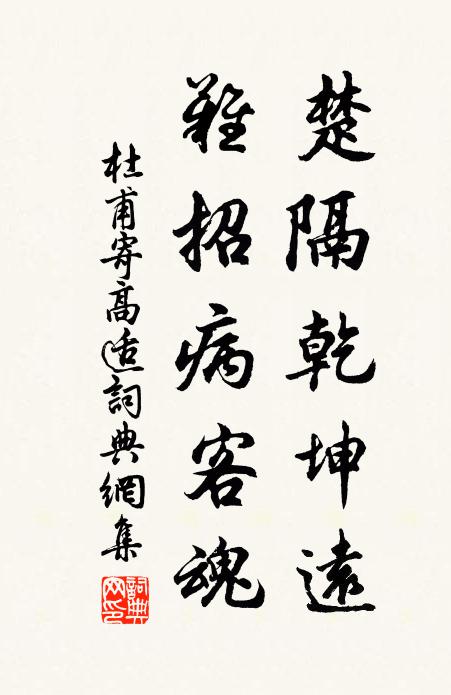 楚隔乾坤遠
難招病客魂
杜甫寄高適詞典網集
詞典网印